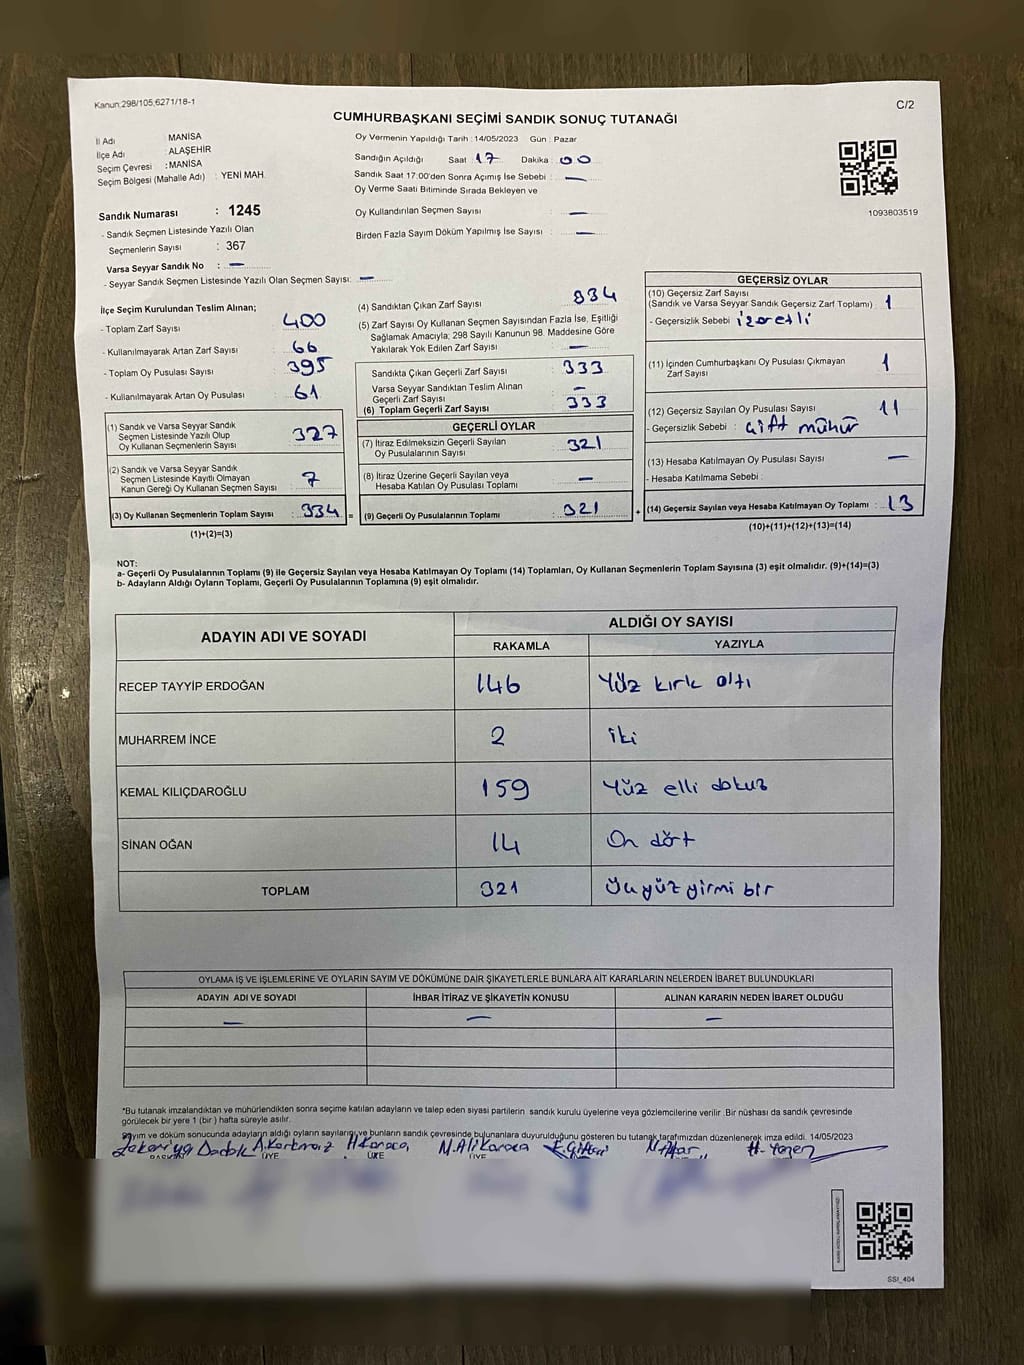 Kanun:298/105,6271/18-1
C/2
CUMHURBAŞKANI SEÇİMİ SANDIK SONUÇ TUTANAĞI
İl Adı : MANİSA
İlçe Adı : ALAŞEHİR
Seçim Çevresi : MANİSA
Seçim Bölgesi (Mahalle Adı) : YENİ MAH.
Oy Vermenin Yapıldığı Tarih : 14/05/2023 Gün : Pazar
Sandığın Açıldığı Saat : 17 Dakika : 00
Sandık Saat 17:00'den Sonra Açımış İse Sebebi : —
Oy Verme Saati Bitiminde Sırada Bekleyen ve
Oy Kullandırılan Seçmen Sayısı : —
Birden Fazla Sayım Döküm Yapılmış İse Sayısı : —
1093803519
Sandık Numarası : 1245
- Sandık Seçmen Listesinde Yazılı Olan
Seçmenlerin Sayısı : 367
Varsa Seyyar Sandık No : —
- Seyyar Sandık Seçmen Listesinde Yazılı Olan Seçmen Sayısı: —
İlçe Seçim Kurulundan Teslim Alınan;
- Toplam Zarf Sayısı : 400
- Kullanılmayarak Artan Zarf Sayısı : 66
- Toplam Oy Pusulası Sayısı : 395
- Kullanılmayarak Artan Oy Pusulası : 61
(1) Sandık ve Varsa Seyyar Sandık
Seçmen Listesinde Yazılı Olup
Oy Kullanan Seçmenlerin Sayısı : 327
(2) Sandık ve Varsa Seyyar Sandık
Seçmen Listesinde Kayıtlı Olmayan
Kanun Gereği Oy Kullanan Seçmen Sayısı : 7
(3) Oy Kullanan Seçmenlerin Toplam Sayısı : 334 =
(1)+(2)=(3)
(4) Sandıktan Çıkan Zarf Sayısı : 334
(5) Zarf Sayısı Oy Kullanan Seçmen Sayısından Fazla İse, Eşitliği
Sağlamak Amacıyla; 298 Sayılı Kanunun 98. Maddesine Göre
Yakılarak Yok Edilen Zarf Sayısı : —
Sandıkta Çıkan Geçerli Zarf Sayısı : 333
Varsa Seyyar Sandıktan Teslim Alınan
Geçerli Zarf Sayısı : —
(6) Toplam Geçerli Zarf Sayısı : 333
GEÇERLİ OYLAR
(7) İtiraz Edilmeksizin Geçerli Sayılan
Oy Pusulalarının Sayısı : 321
(8) İtiraz Üzerine Geçerli Sayılan veya
Hesaba Katılan Oy Pusulası Toplamı : —
(9) Geçerli Oy Pusulalarının Toplamı : 321 +
GEÇERSİZ OYLAR
(10) Geçersiz Zarf Sayısı
(Sandık ve Varsa Seyyar Sandık Geçersiz Zarf Toplamı) : 1
- Geçersizlik Sebebi : İşaretli
(11) İçinden Cumhurbaşkanı Oy Pusulası Çıkmayan
Zarf Sayısı : 1
(12) Geçersiz Sayılan Oy Pusulası Sayısı : 11
- Geçersizlik Sebebi : Çift mühür
(13) Hesaba Katılmayan Oy Pusulası Sayısı : —
- Hesaba Katılmama Sebebi :
(14) Geçersiz Sayılan veya Hesaba Katılmayan Oy Toplamı : 13
(10)+(11)+(12)+(13)=(14)
NOT:
a- Geçerli Oy Pusulalarının Toplamı (9) ile Geçersiz Sayılan veya Hesaba Katılmayan Oy Toplamı (14) Toplamları, Oy Kullanan Seçmenlerin Toplam Sayısına (3) eşit olmalıdır. (9)+(14)=(3)
b- Adayların Aldığı Oyların Toplamı, Geçerli Oy Pusulalarının Toplamına (9) eşit olmalıdır.
ADAYIN ADI VE SOYADI ALDIĞI OY SAYISI
RAKAMLA YAZIYLA
RECEP TAYYİP ERDOĞAN 146 Yüz kırk altı
MUHARREM İNCE 2 iki
KEMAL KILIÇDAROĞLU 159 Yüz elli dokuz
SİNAN OĞAN 14 On dört
TOPLAM 321 Üç yüz yirmi bir
OYLAMA İŞ VE İŞLEMLERİNE VE OYLARIN SAYIM VE DÖKÜMÜNE DAİR ŞİKAYETLERLE BUNLARA AİT KARARLARIN NELERDEN İBARET BULUNDUKLARI
ADAYIN ADI VE SOYADI İHBAR İTİRAZ VE ŞİKAYETİN KONUSU ALINAN KARARIN NEDEN İBARET OLDUĞU
— — —
*Bu tutanak imzalandıktan ve mühürlendikten sonra seçime katılan adayların ve talep eden siyasi partilerin sandık kurulu üyelerine veya gözlemcilerine verilir .Bir nüshası da sandık çevresinde
görülecek bir yere 1 (bir ) hafta süreyle asılır.
Sayım ve döküm sonucunda adayların aldığı oyların sayıları ve bunların sandık çevresinde bulunanlara duyurulduğunu gösteren bu tutanak tarafımızdan düzenlenerek imza edildi. 14/05/2023
Zekeriya Dadak A.Korkmaz H.Karaca M.Ali Karaca
BAŞKAN ÜYE ÜYE ÜYE
SSI_404